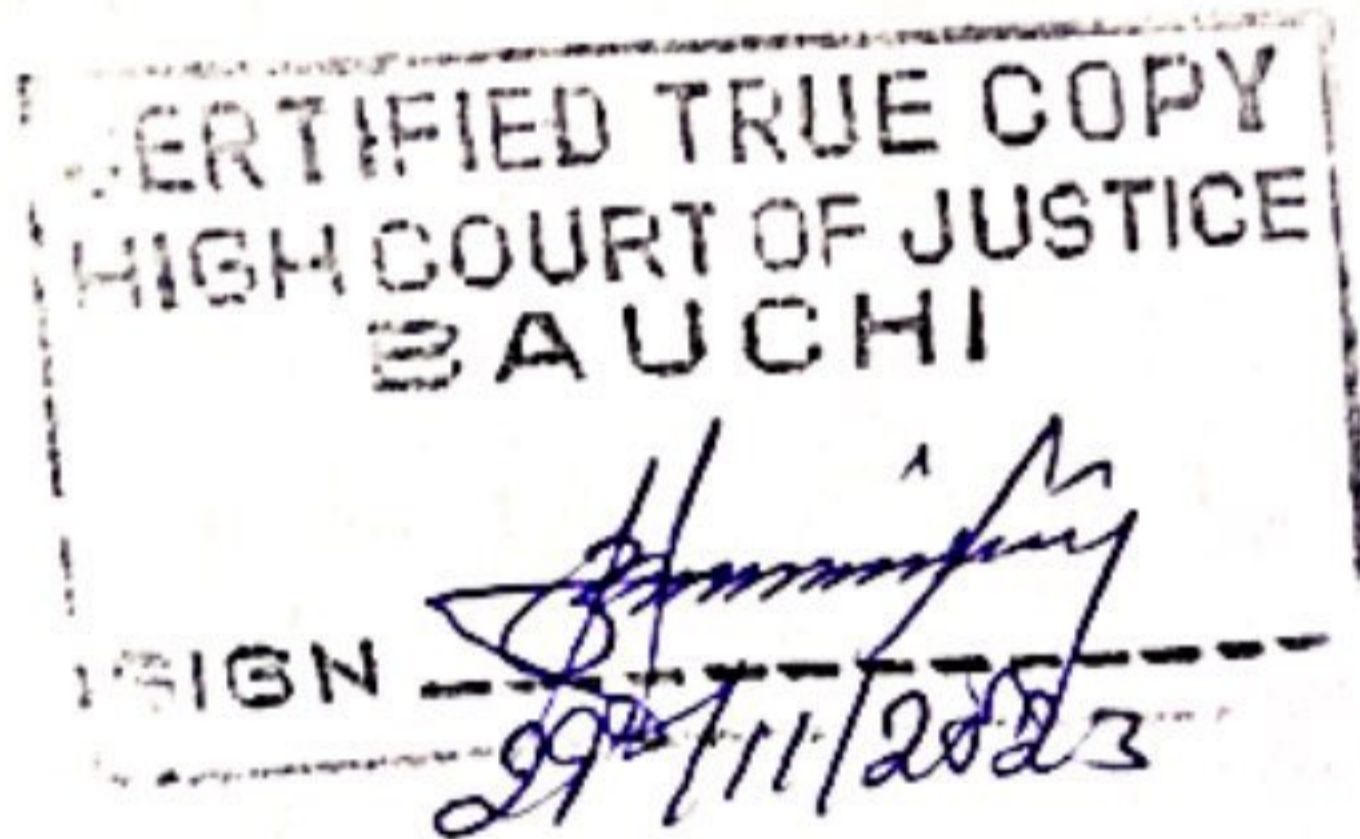 CERTIFIED TRUE COPY
HIGH COURT OF JUSTICE
BAUCHI
SIGN
29th/11/2023